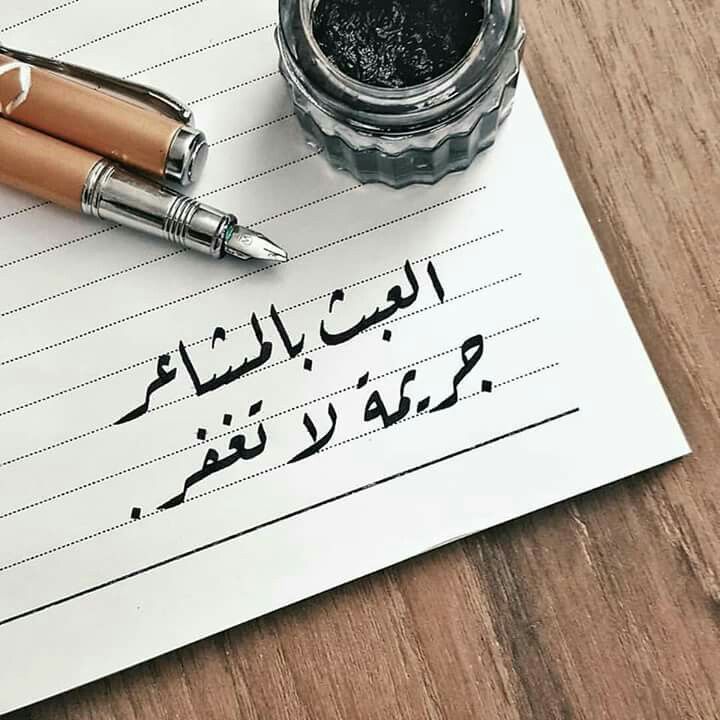 العبث بالمشاعر
جريمة لا تغفر .